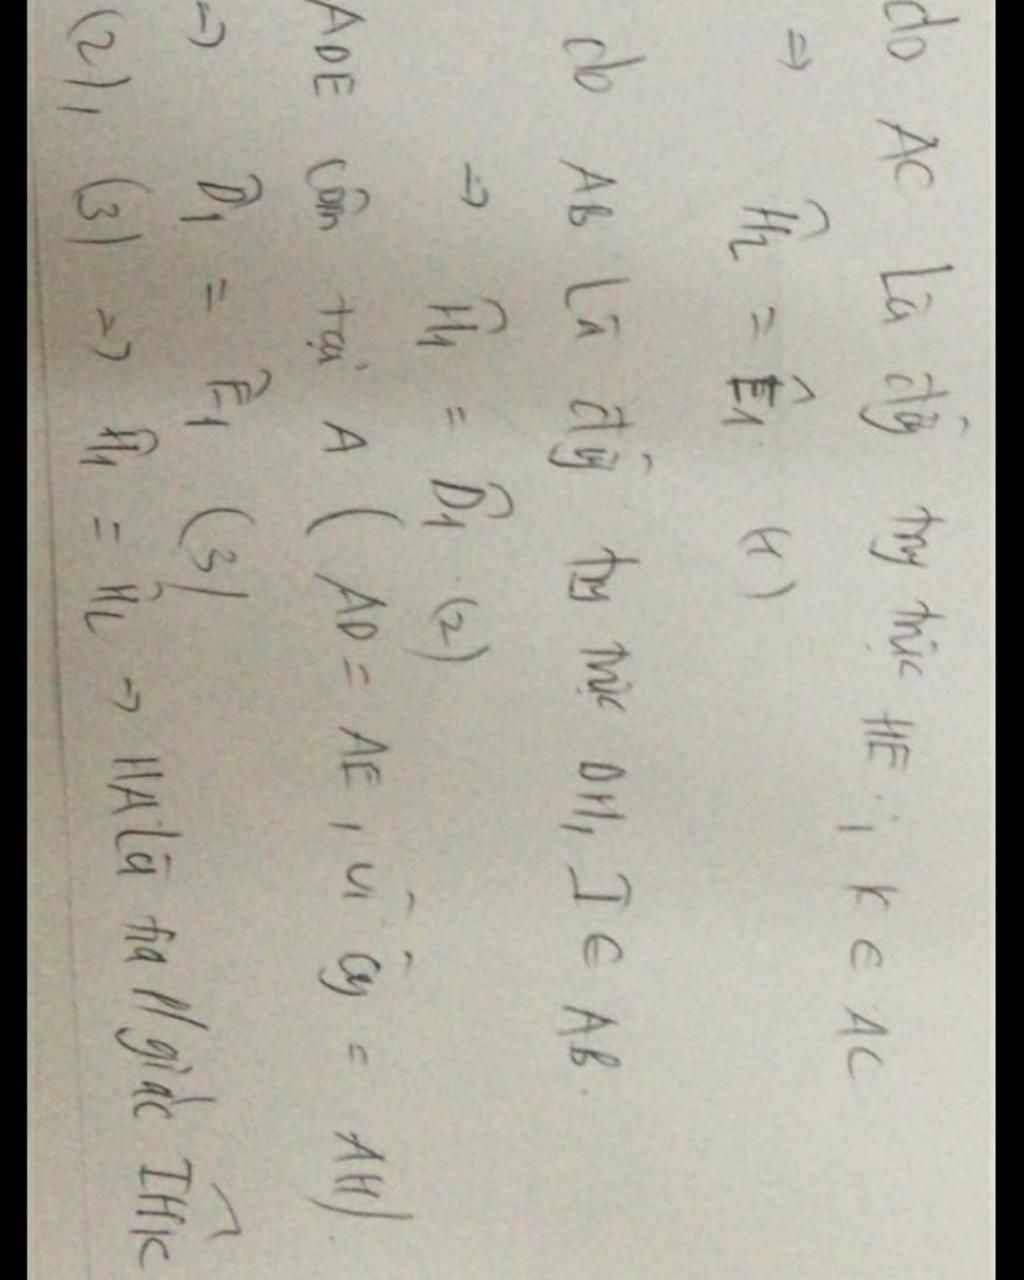 do AC là đg trg trực HE ; K ∈ AC
=> Ĥ₂ = Ê₁ (1)
do AB là đg trg trực DH, I ∈ AB.
=> Ĥ₁ = D̂₁ (2)
ADE cân tại A ( AD = AE , vì cg = AH)
=> D̂₁ = Ê₁ (3)
(2), (3) => Ĥ₁ = Ĥ₂ => HA là tia p/giác IHK